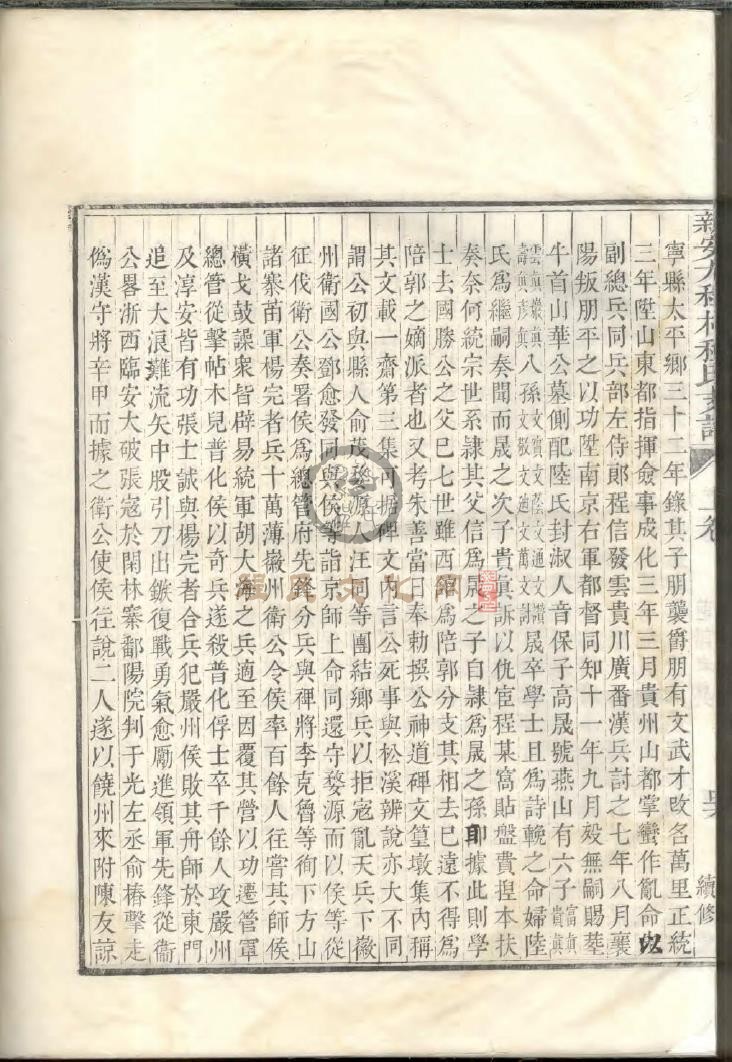 寧縣太平鄉三十二年錄其子朋襲爵朋有文武才改名萬里正統
三年陞山東都指揮僉事成化三年三月貴州山都掌蠻作亂命以
副總兵同兵部左侍郎程信發雲貴川廣番漢兵討之七年八月襄
陽叛朋平之以功陞南京右軍都督同知十一年九月歿無嗣賜塟
牛首山華公墓側配陸氏封淑人音保子高晟號燕山有六子富眞貴眞
雲眞叢眞壽眞彥眞八孫文實文蔭文通文讚文敬文迪文萬文討晟卒學士且爲詩輓之命婦陸
氏爲繼嗣奏聞而晟之次子貴眞訴以仇宦程某窩貼盤費捏本扶
奏奈何統宗世系隷其父信爲晟之子自隷爲晟之孫即據此則學
士去國勝公之父巳七世雖西舘爲陪郭分支其相去巳遠不得爲
陪郭之嫡派者也又考朱善當日奉勅撰公神道碑文篁墩集內稱
其文載一齋第三集可據碑文內言公死事與松溪辨說亦大不同
謂公初與縣人俞茂婺源人汪同等團結鄉兵以拒寇亂天兵下徽
州衛國公鄧愈發同與侯等詣京師上命同還守婺源而以侯等從
征伐衛公奏署侯爲總管府先鋒分兵與裨將李克魯等徇下方山
諸寨苗軍楊完者兵十萬薄徽州衛公令侯率百餘人往嘗其師侯
橫戈鼓譟衆皆辟易統軍胡大海之兵適至因覆其營以功遷管軍
總管從擊帖木兒普化侯以奇兵遂殺普化俘士卒千餘人攻嚴州
及淳安皆有功張士誠與楊完者合兵犯嚴州侯敗其舟師於東門
追至大浪難流矢中股引刀出鏃復戰勇氣愈厲進領軍先鋒從衛
公畧浙西臨安大破張寇於閑林寨鄱陽院判于光左丞俞椿擊走
僞漢守將辛甲而據之衛公使侯往說二人遂以饒州來附陳友諒
續修